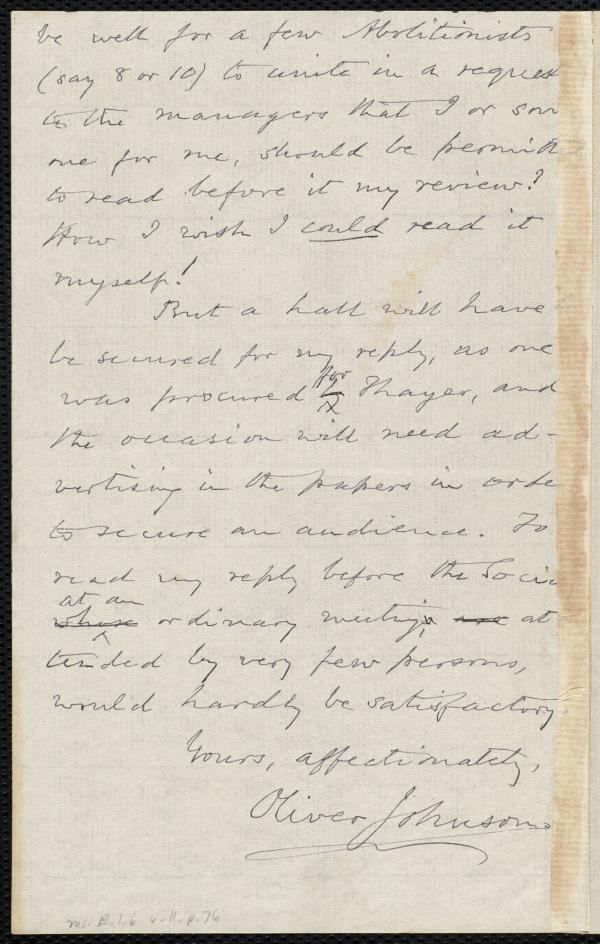 be well for a few Abolitionists
(say 8 or 10) to unite in a request
to the managers that I or som
one for me, should be permitt
to read before it my review?
How I wish I could read it
myself!
But a hall will have
be secured for my reply, as one
for
was procured Thayer, and
the occasion will need ad-
vertising in the papers in orde
to secure an audience. To
read my reply before the Socie
at an
whose ordinary meetings, are at
tended by very few persons,
would hardly be satisfactory
Yours, affectionately,
Oliver Johnson
ms. B.1.6 v.11, p.76